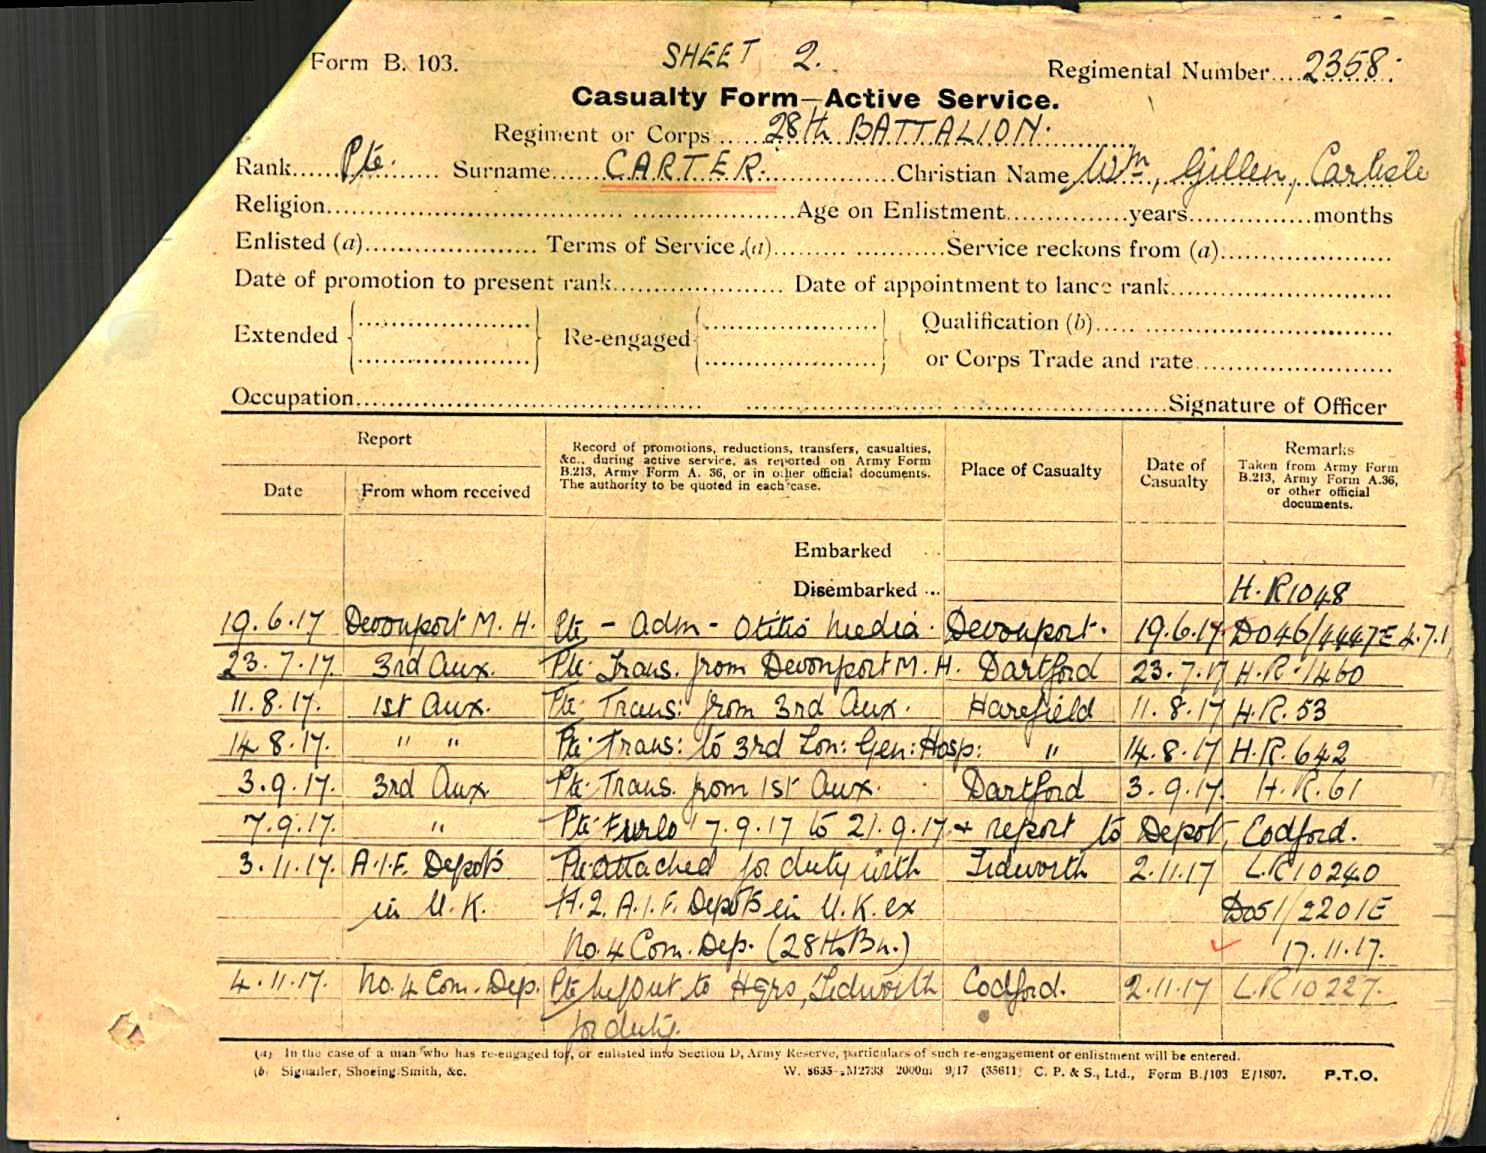 SHEET 2.
Form B. 103. Regimental Number....2358.
Casualty Form—Active Service.
Regiment or Corps.....28th BATTALION.
Rank......Pte........ Surname......CARTER...............Christian Name Wm, Gillen, Carlisle
Religion...............Age on Enlistment...............years...............months
Enlisted (a)............... Terms of Service (a)...............Service reckons from (a)...............
Date of promotion to present rank............... Date of appointment to lance rank...............
Extended Re-engaged Qualification (b)...............
or Corps Trade and rate...............
Occupation...............Signature of Officer
Report
Date From whom received
Record of promotions, reductions, transfers, casualties,
&c., during active service, as reported on Army Form
B.213, Army Form A. 36, or in other official documents.
The authority to be quoted in each case.
Place of Casualty
Date of
Casualty
Remarks
Taken from Army Form
B.213, Army Form A.36,
or other official
documents.
Embarked ..
Disembarked ... H.R1048
19.6.17 Devonport M. H. Pte - Adm - Otitis Media. Devonport. 19.6.17 DO46/4447E 4.7.1
23.7.17. 3rd Aux. Pte Trans. from Devonport M. H. Dartford 23.7.17 H.R.1460
11.8.17. 1st Aux. Pte Trans: from 3rd Aux. Harefield 11.8.17 H.R.53
14.8.17. " " Pte Trans: to 3rd Lon: Gen: Hosp: " 14.8.17 H.R.642
3.9.17. 3rd Aux Pte Trans. from 1st Aux. Dartford 3.9.17. H.R.61
7.9.17. " Pte Furlo 7.9.17 to 21.9.17. + report to Depot, Codford.
3.11.17. A.I.F. Depots Pte Attached for duty with Tidworth 2.11.17 L.R10240
in U.K. H.Q. A.I.F. Depots in U.K. ex DO51/2201E
No. 4 Com. Dep. (28th Bn.) 17.11.17.
4.11.17. No. 4 Com. Dep. Pte M/out to Hqrs, Tidworth Codford. 2.11.17 L.R10227.
for duty.
(a) In the case of a man who has re-engaged for, or enlisted into Section D, Army Reserve, particulars of such re-engagement or enlistment will be entered.
(b) Signaller, Shoeing Smith, &c. W. 8635—M2733 2000m 9/17 (35611) C. P. & S., Ltd., Form B./103 E/1807. P.T.O.